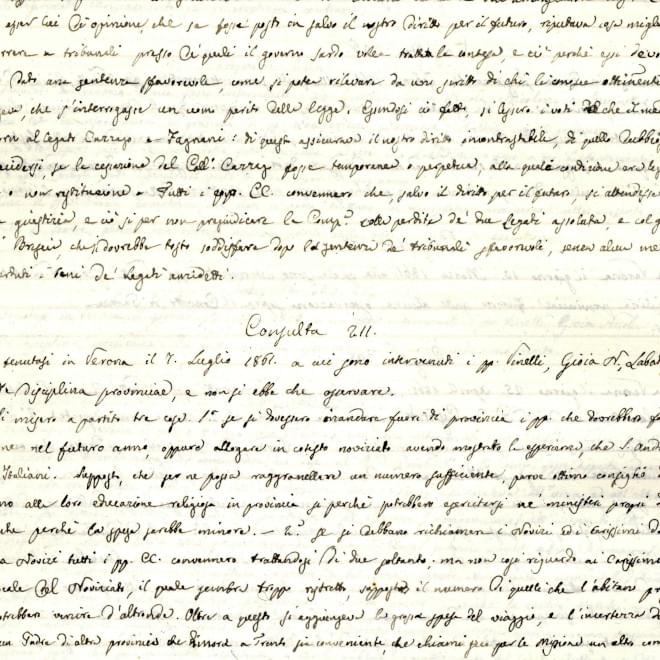 esser lui di opinione, che se fosse posto in salvo il nostro diritto per il futuro, riputava cosa migli
a tribunali presso de' quali il governo sardo volea trattar la contesa, e ciò perchè essi
una sentenza sfavorevole, come si potea rilevare da uno scritto di chi
che s'interrogasse un uomo perito delle legge. Essendosi ciò fatto, si lessero i voti
al legato Carrago e Fagnani: di questi assicurava il nostro diritto incontrastabile, di quello dubbio
se la cessazione del Coll. Carrago fosse temporanea o perpetua, alla quale condizione era
o non restituzione. Tutti i pp. CC. convennero che, salvo il diritto per il futuro, si attendesse
giustizia, e ciò si per non pregiudicare la Comp.ª colla perdita de' due Legati assoluta, e col
Brescia, che si dovrebbe tosto soddisfare dopo la sentenza de' tribunali sfavorevoli, senza alcun
i beni de' Legati anzidetti.
Consulta 211.
tenutasi in Verona il 7. Luglio 1861. a cui sono intervenuti i pp. Vinelli, Gioia N., Laba
disciplina provinciae, e non si ebbe che osservare.
misero a partito tre cose. 1.ª se si dovessero mandare fuori di provincia i pp. che dovrebbero
nel futuro anno, oppure allogare in cotesto noviziato avendo mostrato la esperienza, che S. And
Italiani. Supposto, che se ne possa raggranellare un numero sufficiente, parve ottimo consiglio
alla loro educazione religiosa in provincia sì perchè potrebbero esercitarsi ne' ministeri propri
che perchè la spesa sarebbe minore. - 2.ª se si debbano richiamare i Novizi ed i Carissimi
Novizi tutti i pp. CC. convennero trattandosi di due soltanto; ma non così riguardo ai Carissimi
del Noviziato, il quale sembra troppo ristretto, supposto il numero di quelli che l'abitano
venire d'altronde. Oltre a questo si aggiungeva la grossa spesa del viaggio, e l'incertezza
un Padre di altra provincia che dimora a Trento sia conveniente, che chiami seco per le Missioni un altro